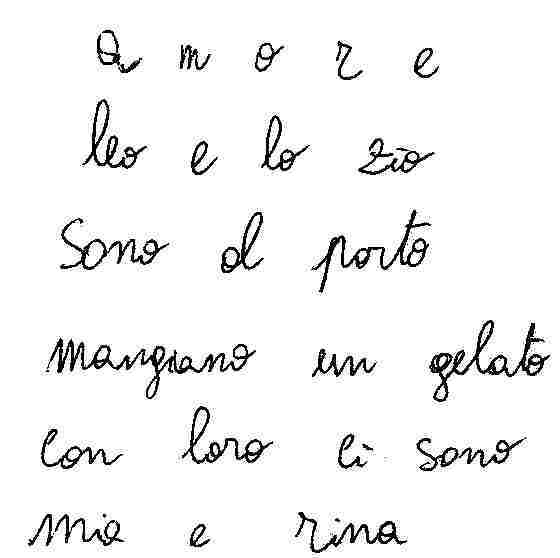 a m o r e
leo e lo zio
sono al porto
mangiano un gelato
con loro ci sono
mia e rina